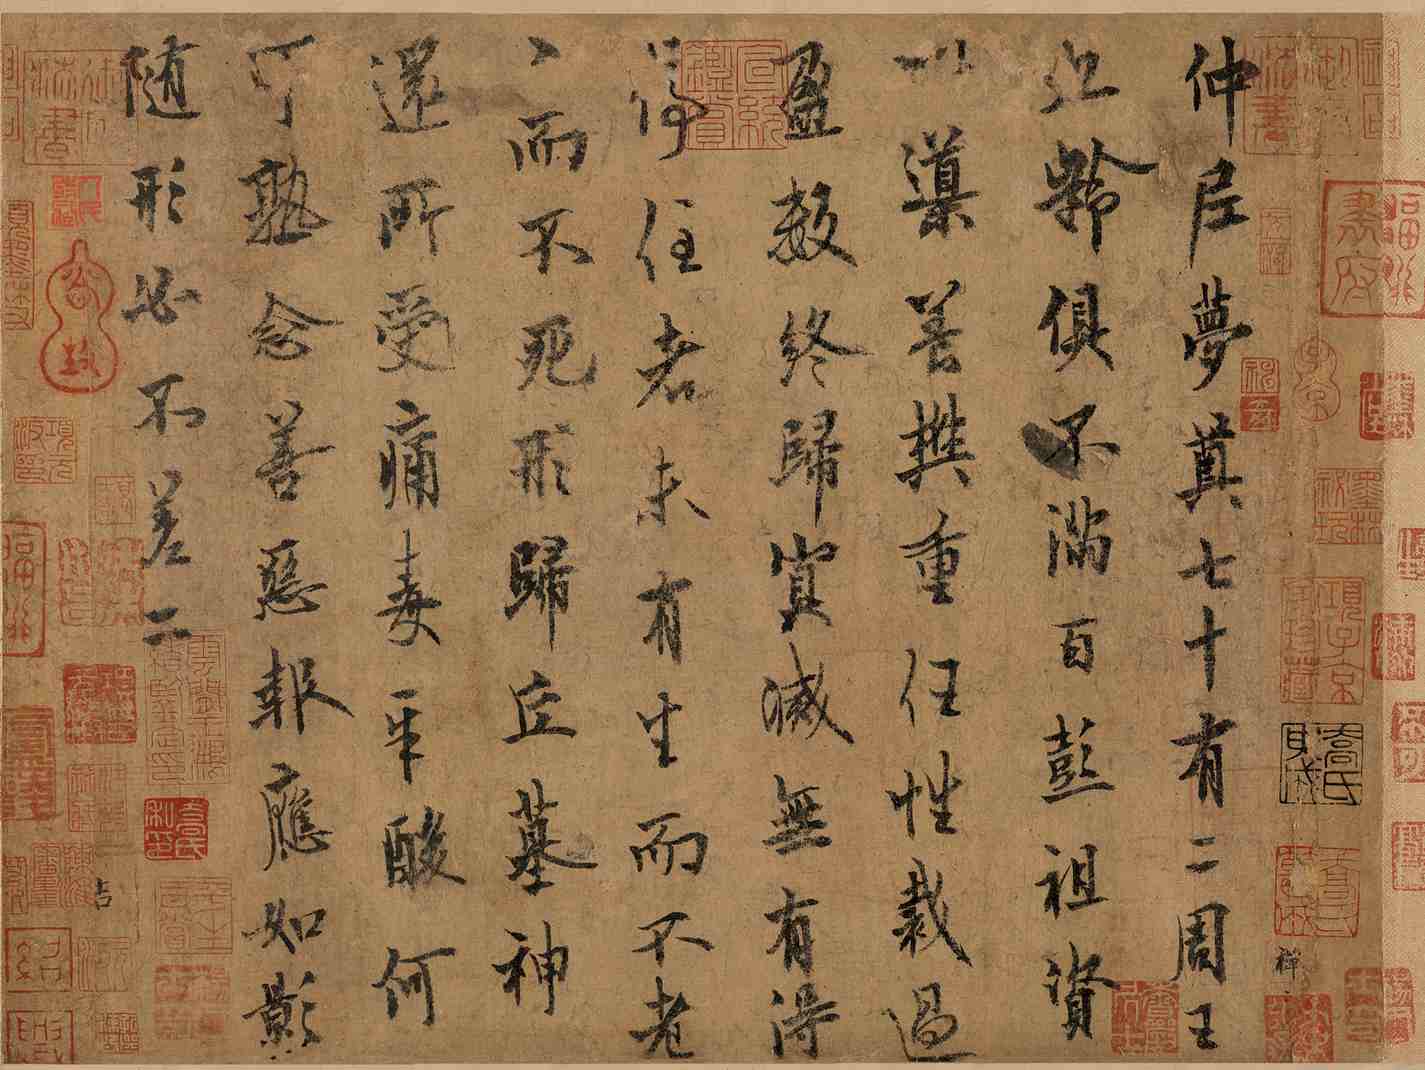 仲尼夢奠七十有二周王
九齡俱不滿百彭祖資
以導養樊重任性裁過
盈數終歸冥滅無有得
停住者未有生而不老
〻而不死形歸丘墓神
還所受痛毒辛酸何
可熟念善惡報應如影
隨形必不差二
宣統鑑賞